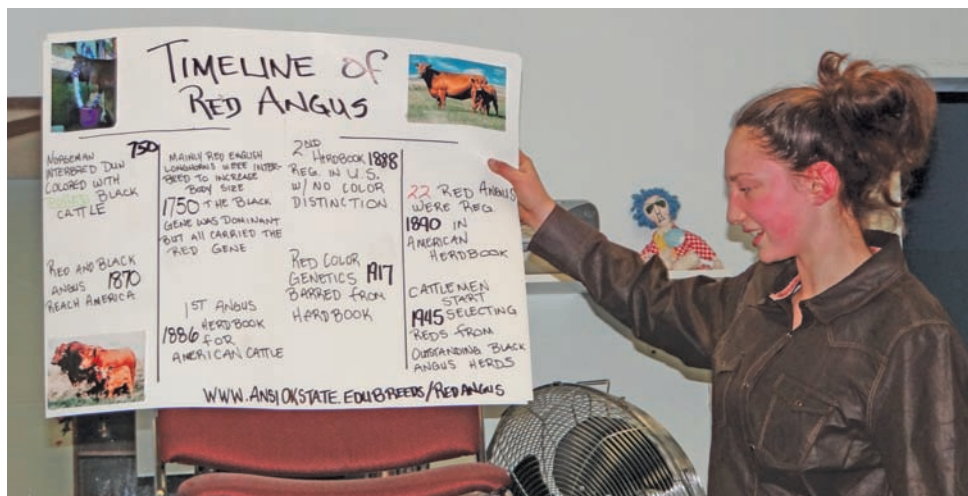 TIMELINE OF
RED ANGUS
NORSEMAN 750
INTERBRED DUN
COLORED WITH
BLACK
CATTLE
RED AND BLACK
ANGUS 1870
REACH AMERICA
MAINLY RED ENGLISH
LONGHORNS WERE INTER-
BRED TO INCREASE
BODY SIZE
1750 THE BLACK
GENE WAS DOMINANT
BUT ALL CARRIED THE
RED GENE
1ST ANGUS
1886 HERDBOOK
FOR
AMERICAN CATTLE
2ND
HERDBOOK 1888
REG. IN U.S.
W/ NO COLOR
DISTINCTION
RED COLOR
GENETICS 1917
BARRED FROM
HERDBOOK
22 RED ANGUS
WERE REG.
1890 IN
AMERICAN
HERDBOOK
CATTLEMEN
START
1945 SELECTING
REDS FROM
OUTSTANDING BLACK
ANGUS HERDS
WWW.ANSI.OKSTATE.EDU/BREEDS/REDANGUS